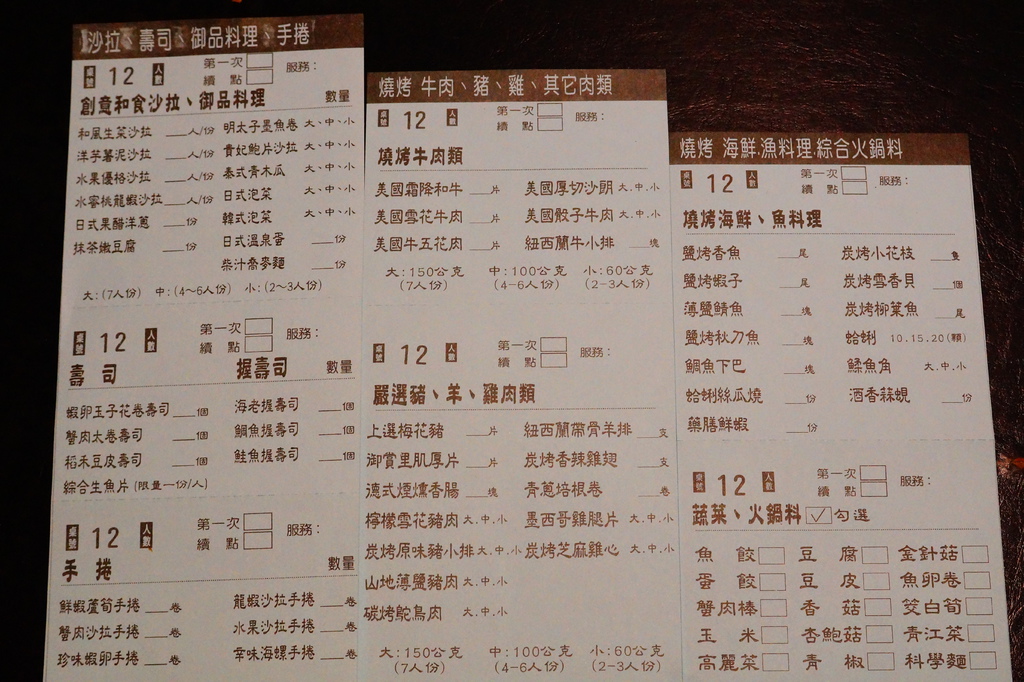 沙拉、壽司、御品料理、手捲
桌號 12 人數 第一次 服務：
續點
創意和食沙拉、御品料理 數量
和風生菜沙拉 ___人/份 明太子墨魚卷 大、中、小
洋芋薯泥沙拉 ___人/份 貴妃鮑片沙拉 大、中、小
水果優格沙拉 ___人/份 泰式青木瓜 大、中、小
水蜜桃龍蝦沙拉 ___人/份 日式泡菜 大、中、小
日式果醋洋蔥 ___份 韓式泡菜 大、中、小
抹茶嫩豆腐 ___份 日式溫泉蛋 ___份
柴汁喬麥麵 ___份
大：(7人份) 中：(4~6人份) 小：(2~3人份)
桌號 12 人數 第一次 服務：
續點
壽司 握壽司 數量
蝦卵玉子花卷壽司 ___個 海老握壽司 ___個
蟹肉太卷壽司 ___個 鯛魚握壽司 ___個
稻禾豆皮壽司 ___個 鮭魚握壽司 ___個
綜合生魚片 (限量一份/人)
桌號 12 人數 第一次 服務：
續點
手捲 數量
鮮蝦蘆筍手捲 ___卷 龍蝦沙拉手捲 ___卷
蟹肉沙拉手捲 ___卷 水果沙拉手捲 ___卷
珍味蝦卵手捲 ___卷 幸味海螺手捲 ___卷
燒烤 牛肉、豬、雞、其它肉類
桌號 12 人數 第一次 服務：
續點
燒烤牛肉類
美國霜降和牛 ___片 美國厚切沙朗 大.中.小
美國雪花牛肉 ___片 美國骰子牛肉 大.中.小
美國牛五花肉 ___片 紐西蘭牛小排 ___塊
大：150公克 中：100公克 小：60公克
(7人份) (4-6人份) (2-3人份)
桌號 12 人數 第一次 服務：
續點
嚴選豬、羊、雞肉類
上選梅花豬 ___片 紐西蘭帶骨羊排 ___支
御賞里肌厚片 ___片 炭烤香辣雞翅 ___支
德式煙燻香腸 ___塊 青蔥培根卷 ___卷
檸檬雪花豬肉 大.中.小 墨西哥雞腿片 大.中.小
炭烤原味豬小排 大.中.小 炭烤芝麻雞心 大.中.小
山地薄鹽豬肉 大.中.小
碳烤鴕鳥肉 大.中.小
大：150公克 中：100公克 小：60公克
(7人份) (4-6人份) (2-3人份)
燒烤 海鮮.漁料理.綜合火鍋料
桌號 12 人數 第一次 服務：
續點
燒烤海鮮、魚料理
鹽烤香魚 ___尾 炭烤小花枝 ___隻
鹽烤蝦子 ___尾 炭烤雪香貝 ___個
薄鹽鯖魚 ___塊 炭烤柳葉魚 ___尾
鹽烤秋刀魚 ___塊 蛤蜊 10.15.20(顆)
鯛魚下巴 ___塊 鰇魚角 大.中.小
蛤蜊絲瓜燒 ___份 酒香蒜蜆 ___份
藥膳鮮蝦 ___份
桌號 12 人數 第一次 服務：
續點
蔬菜、火鍋料 ☑勾選
魚餃□ 豆腐□ 金針菇□
蛋餃□ 豆皮□ 魚卵卷□
蟹肉棒□ 香菇□ 筊白筍□
玉米□ 杏鮑菇□ 青江菜□
高麗菜□ 青椒□ 科學麵□